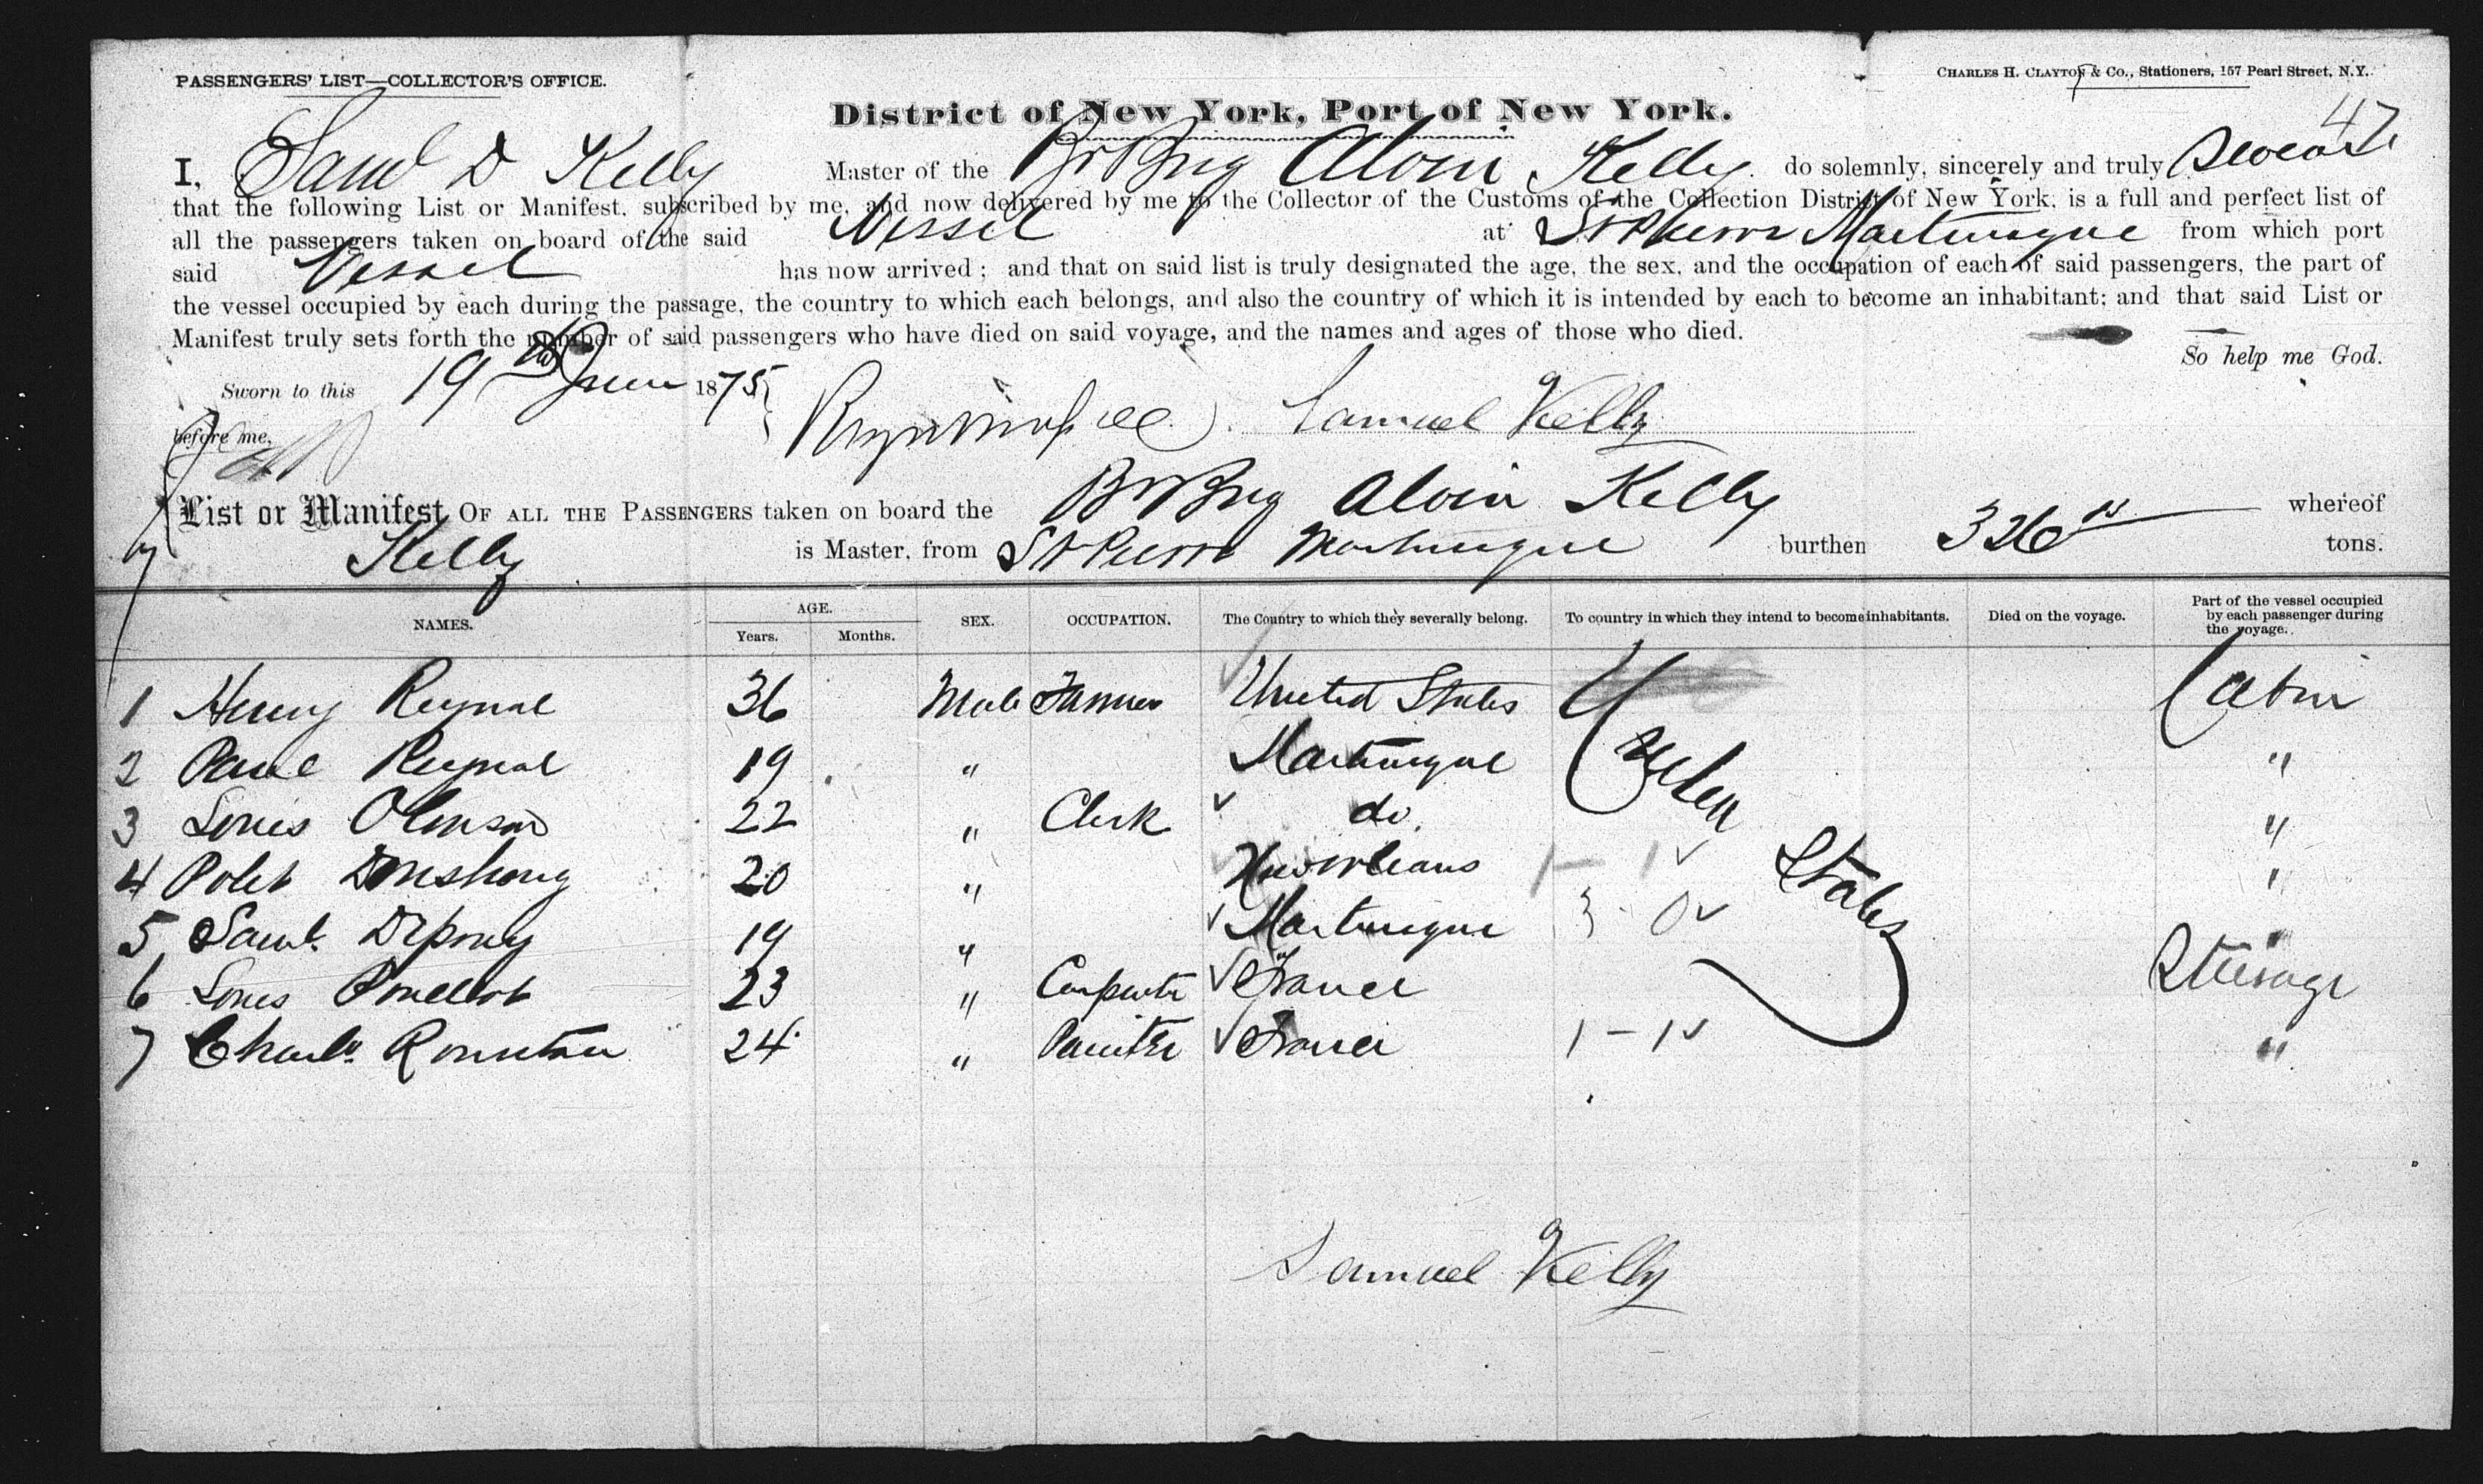 PASSENGERS' LIST—COLLECTOR'S OFFICE.
CHARLES H. CLAYTON & Co., Stationers, 157 Pearl Street, N.Y.
District of New York, Port of New York.
47
I, Saml D Kelly Master of the Br Brig Alvin Kelly do solemnly, sincerely and truly Swear
that the following List or Manifest, subscribed by me, and now delivered by me to the Collector of the Customs of the Collection District of New York, is a full and perfect list of
all the passengers taken on board of the said Vessel at St Pierre Martinique from which port
said Vessel has now arrived; and that on said list is truly designated the age, the sex, and the occupation of each of said passengers, the part of
the vessel occupied by each during the passage, the country to which each belongs, and also the country of which it is intended by each to become an inhabitant; and that said List or
Manifest truly sets forth the number of said passengers who have died on said voyage, and the names and ages of those who died.
So help me God.
Sworn to this 19th June 1875
before me, Samuel Kelly
List or Manifest OF ALL THE PASSENGERS taken on board the Br Brig Alvin Kelly whereof
Kelly is Master, from St Pierre Martinique burthen 326 tons.
NAMES. AGE. Years. Months. SEX. OCCUPATION. The Country to which they severally belong. To country in which they intend to become inhabitants. Died on the voyage. Part of the vessel occupied by each passenger during the voyage.
1 Henry Reynal 36 Male Farmer United States United States Cabin
2 Paul Reynal 19 " Martinique "
3 Louis 22 " Clerk do. "
4 20 " New Orleans 1 - 1 "
5 Saml. 19 " Martinique 3 - 0 "
6 Louis 23 " Carpenter France Steerage
7 Charles 24 " Painter France 1 - 1 "
Samuel Kelly